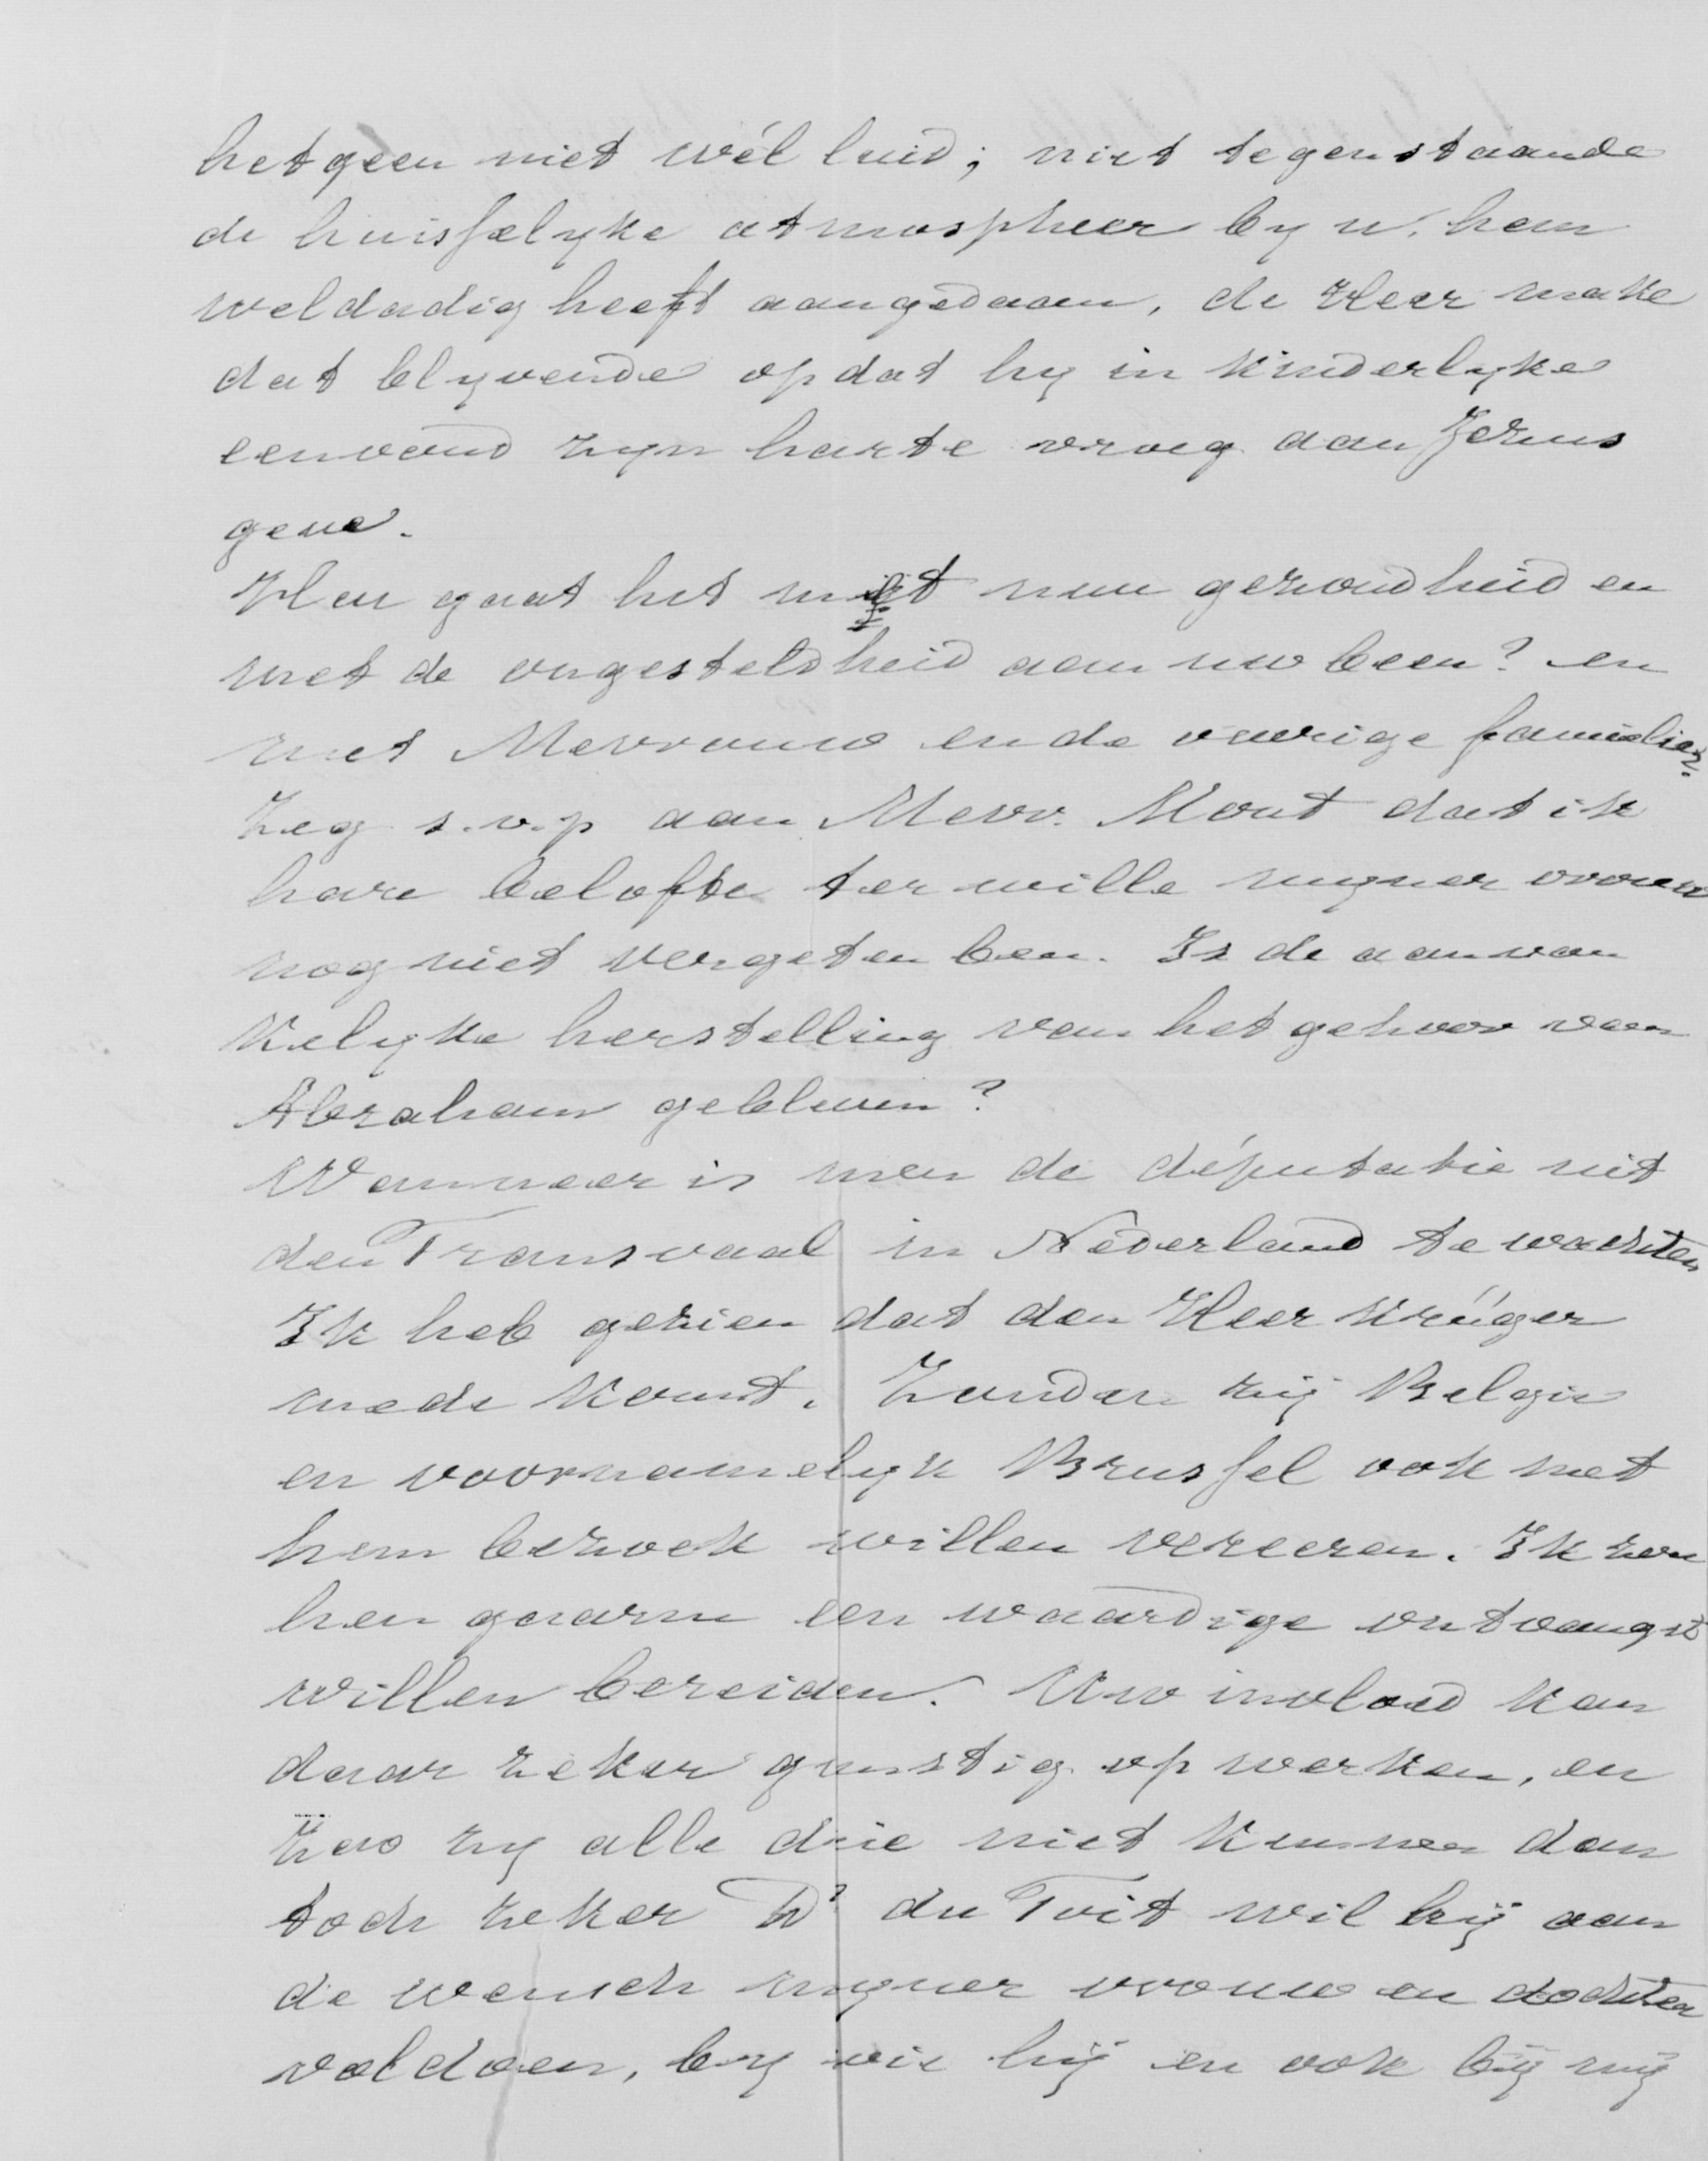 hetgeen niet wél luid; niet tegenstaande
de huisselyke atmospheer by u. hem
weldadig heeft aangedaan, de Heer make
dat blyvende opdat hy in kinderlyke
eenvoud zyn harte vroeg aan Jezus
geve.
Hoe gaat het met uwe gezondheid en
met de ongesteldheid aan uw been? en
met Mevrouw en de overige familie?
Zeg s.v.p aan Mevr. Mout dat ik
hare belofte ter wille myner vrouw
nog niet vergeten ben. Is de aanvan
kelyke herstelling van het gehoor van
Abraham gebleven?
Wanneer is men de députatie uit
den Transvaal in Nederland te wachten
Ik heb gezien dat den Heer Krüger
mede komt. Zouden zij Belgie
en voornamelyk Brussel ook met
hem bezoek willen vereeren. Ik zou
hen gaarne een waardige ontvangst
willen bereiden. Uw invloed kan
daar zeker gunstig op werken, en
zoo zy alle drie niet kunnen dan
toch zeker Ds du Toit wil hij aan
de wensch myner vrouw en dochter
voldoen, by wie hij en ook bij mij